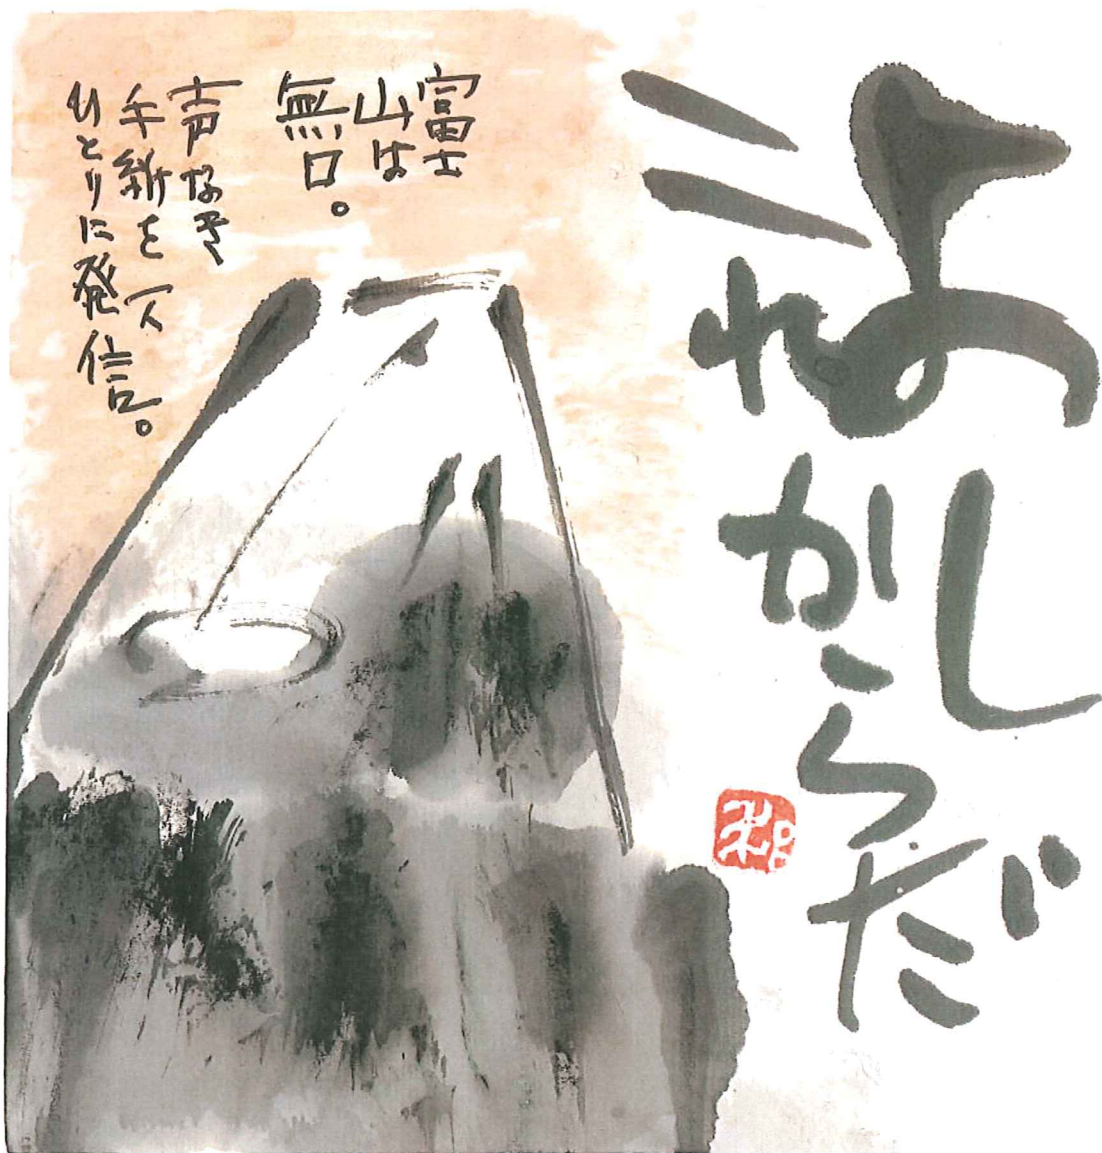 よし
これからだ
富士
山は
無口。
声なき
手紙を一人
ひとりに発信。